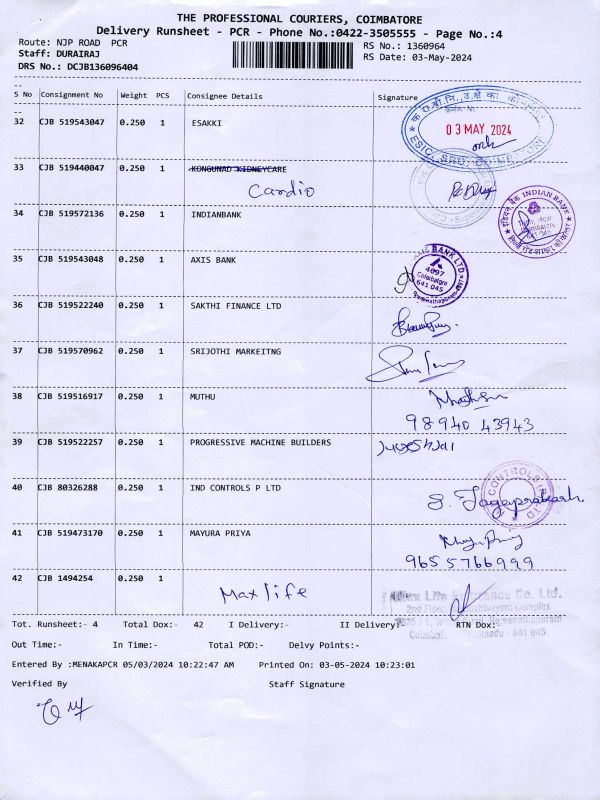 THE PROFESSIONAL COURIERS, COIMBATORE
Delivery Runsheet - PCR - Phone No.:0422-3505555 - Page No.:4
Route: NJP ROAD PCR
RS No.: 1360964
Staff: DURAIRAJ
RS Date: 03-May-2024
DRS No.: DCJB136096404
S No Consignment No Weight PCS Consignee Details Signature
32 CJB 519543047 0.250 1 ESAKKI
03 MAY 2024
33 CJB 519440047 0.250 1 KONGUNAD KIDNEYCARE
Cardio
34 CJB 519572136 0.250 1 INDIANBANK
INDIAN BANK
35 CJB 519543048 0.250 1 AXIS BANK
AXIS BANK LTD
4097
Coimbatore
641 045
36 CJB 519522240 0.250 1 SAKTHI FINANCE LTD
37 CJB 519570962 0.250 1 SRIJOTHI MARKEITNG
38 CJB 519516917 0.250 1 MUTHU
98940 43943
39 CJB 519522257 0.250 1 PROGRESSIVE MACHINE BUILDERS
40 CJB 80326288 0.250 1 IND CONTROLS P LTD
41 CJB 519473170 0.250 1 MAYURA PRIYA
9655766999
42 CJB 1494254 0.250 1
Max life
Tot. Runsheet:- 4 Total Dox:- 42 I Delivery:- II Delivery:- RTN Dox:-
Out Time:- In Time:- Total POD:- Delvy Points:-
Entered By :MENAKAPCR 05/03/2024 10:22:47 AM Printed On: 03-05-2024 10:23:01
Verified By Staff Signature